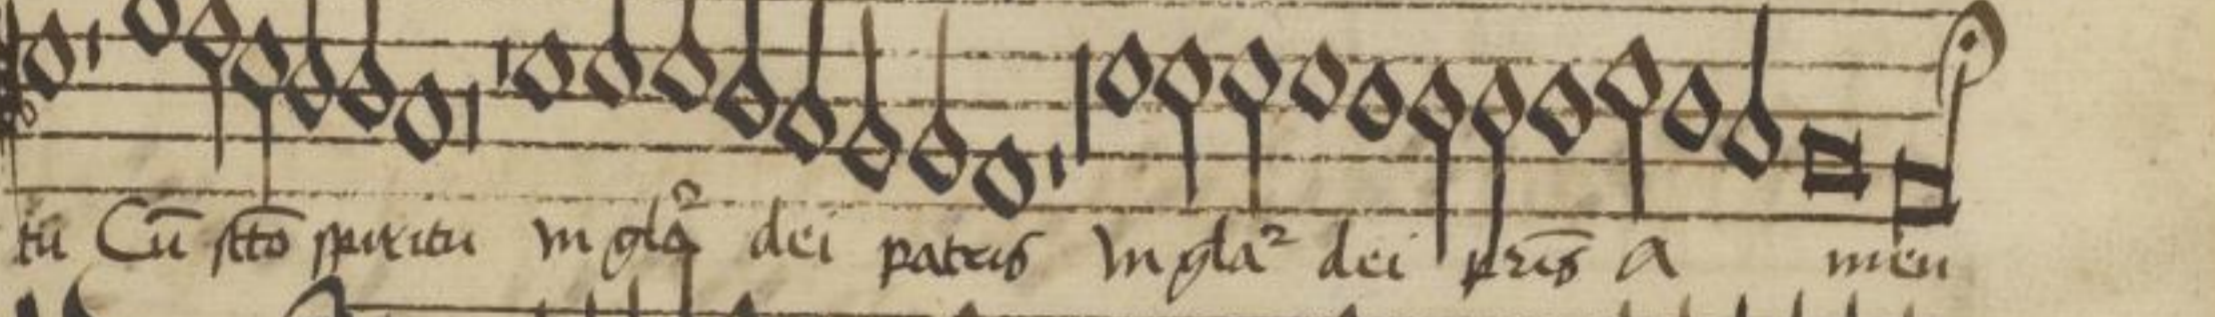 tū Cū sc̄to spiritu in gła² dei patris In gla² dei pr̄is A men